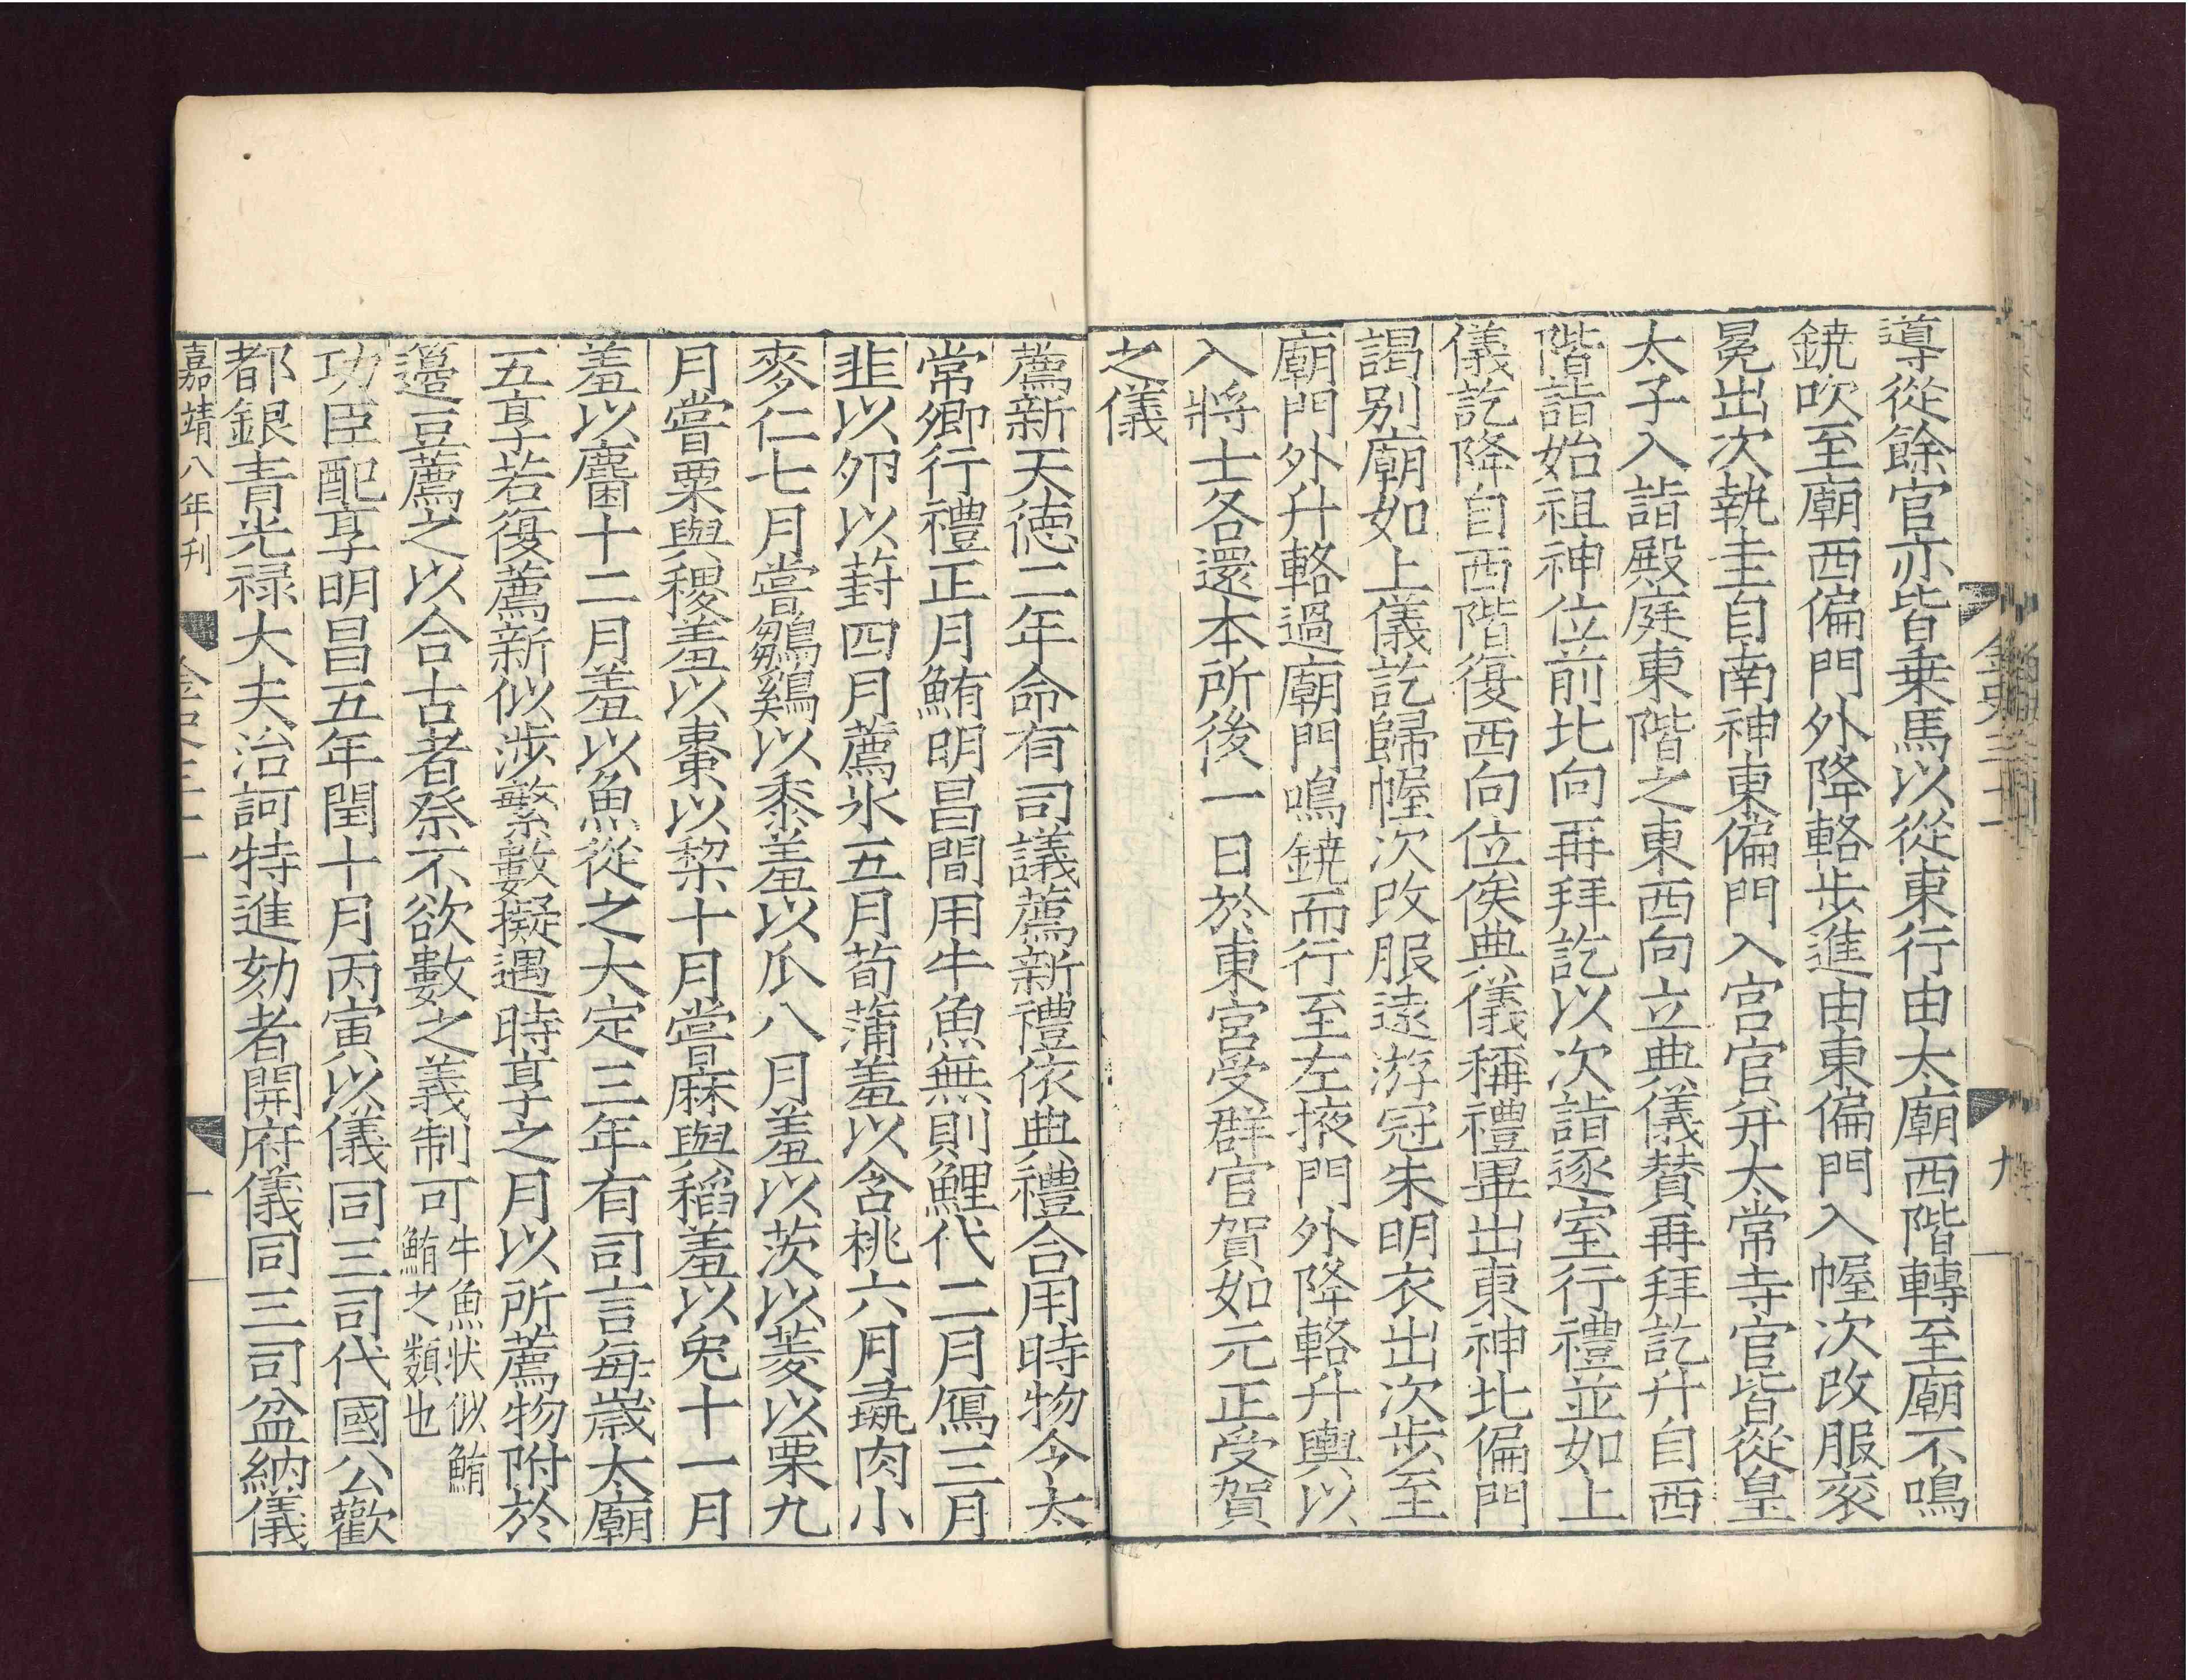 導從餘官亦皆乗馬以從東行由太廟西階轉至廟不鳴
鐃吹至廟西偏門外降輅步進由東偏門入幄次改服衮
冕出次執圭自南神東偏門入宫官并太常寺官皆從皇
太子入詣殿庭東階之東西向立典儀賛再拜訖升自西
階詣始祖神位前北向再拜訖以次詣逐室行禮並如上
儀訖降自西階復西向位俟典儀稱禮畢出東神北偏門
謁别廟如上儀訖歸幄次改服遠游冠朱明衣出次步至
廟門外升輅過廟門鳴鐃而行至左掖門外降輅升輿以
入將士各還本所後一日於東宫受群官賀如元正受賀
之儀
金史三十一
九
薦新天徳二年命有司議薦新禮依典禮合用時物令太
常卿行禮正月鮪明昌間用牛魚無則鯉代二月鴈三月
韭以夘以葑四月薦氷五月荀蒲羞以含桃六月彘肉小
麥仁七月嘗鶵鷄以黍羞以瓜八月羞以茨以菱以栗九
月嘗粟與稷羞以棗以棃十月嘗麻與稻羞以兎十一月
羞以麕十二月羞以魚從之大定三年有司言每歳太廟
五享若復薦新似涉繁數擬遇時享之月以所薦物附於
籩豆薦之以合古者祭不欲數之義制可牛魚状似鮪
鮪之類也
功臣配享明昌五年閏十月丙寅以儀同三司代國公歡
都銀青光禄大夫冶訶特進劾者開府儀同三司盆納儀
嘉靖八年刊
金史三十一
十